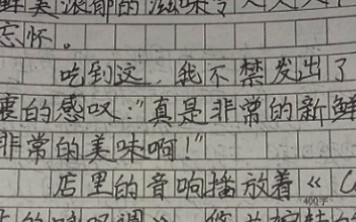 鲜美浓郁的滋味令人
忘怀。
吃到这,我不禁发出了
衷的感叹:"真是非常的新鲜
非常的美味啊!"
店里的音响播放着《
400字